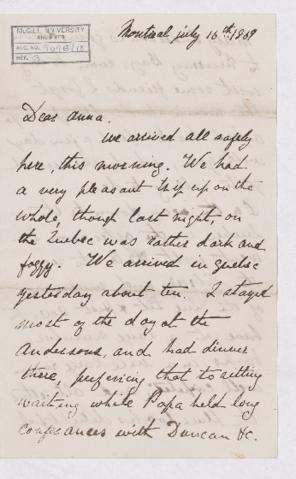 McGILL UNIVERSITY
ARCHIVES
ACC. NO.
REF.
Montreal july 16th 1869
Dear Anna.
We arrived all safely
here, this morning. We had
a very pleasant trip up on the
whole, though last night, on
the Quebec was rather dark and
foggy. We arrived in Quebec
yesterday about ten. I stayed
most of the day at the
Andersons, and had dinner
there, prefering that to sitting
waiting while Papa held long
confrences with Duncan &c.